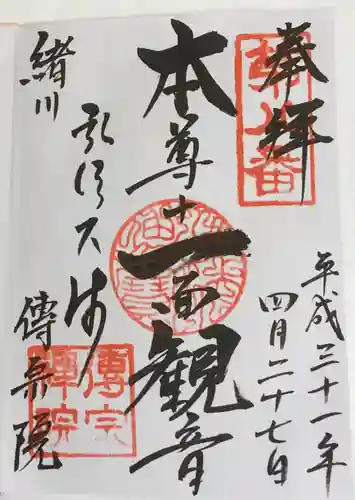 奉拝
平成三十一年
四月二十七日
本尊十一面観音
弘法大師
緒川
傳宗院
傳宗
禅院